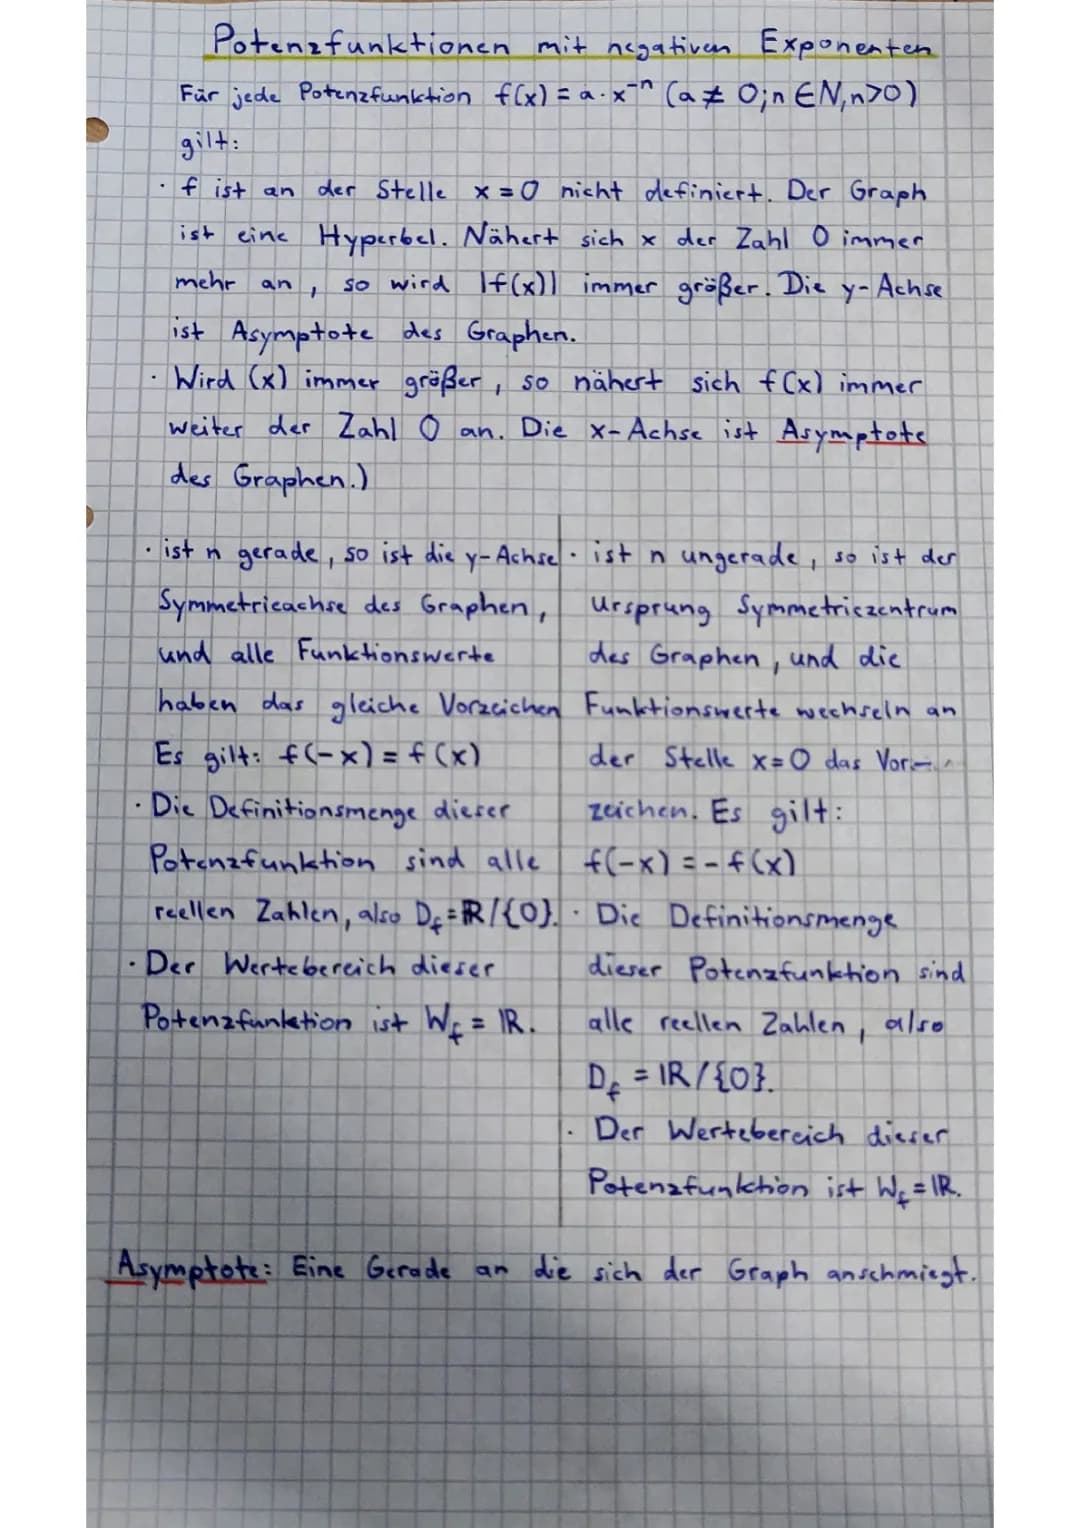 Potenzfunktionen mit negativen Exponenten
Für jede Potenzfunktion f(x) = a·x⁻ⁿ (a ≠ 0; n ∈ N, n>0)
gilt:
· f ist an der Stelle x = 0 nicht definiert. Der Graph
ist eine Hyperbel. Nähert sich x der Zahl 0 immer
mehr an, so wird |f(x)| immer größer. Die y-Achse
ist Asymptote des Graphen.
· Wird (x) immer größer, so nähert sich f(x) immer
weiter der Zahl 0 an. Die x-Achse ist Asymptote
des Graphen.)
· ist n gerade, so ist die y-Achse
Symmetrieachse des Graphen,
und alle Funktionswerte
haben das gleiche Vorzeichen
Es gilt: f(-x) = f(x)
· Die Definitionsmenge dieser
Potenzfunktion sind alle
reellen Zahlen, also D_f = ℝ/{0}.
· Der Wertebereich dieser
Potenzfunktion ist W_f = ℝ.
· ist n ungerade, so ist der
Ursprung Symmetriezentrum
des Graphen, und die
Funktionswerte wechseln an
der Stelle x=0 das Vor-
zeichen. Es gilt:
f(-x) = -f(x)
· Die Definitionsmenge
dieser Potenzfunktion sind
alle reellen Zahlen, also
D_f = ℝ/{0}.
· Der Wertebereich dieser
Potenzfunktion ist W_f = ℝ.
Asymptote: Eine Gerade an die sich der Graph anschmiegt.